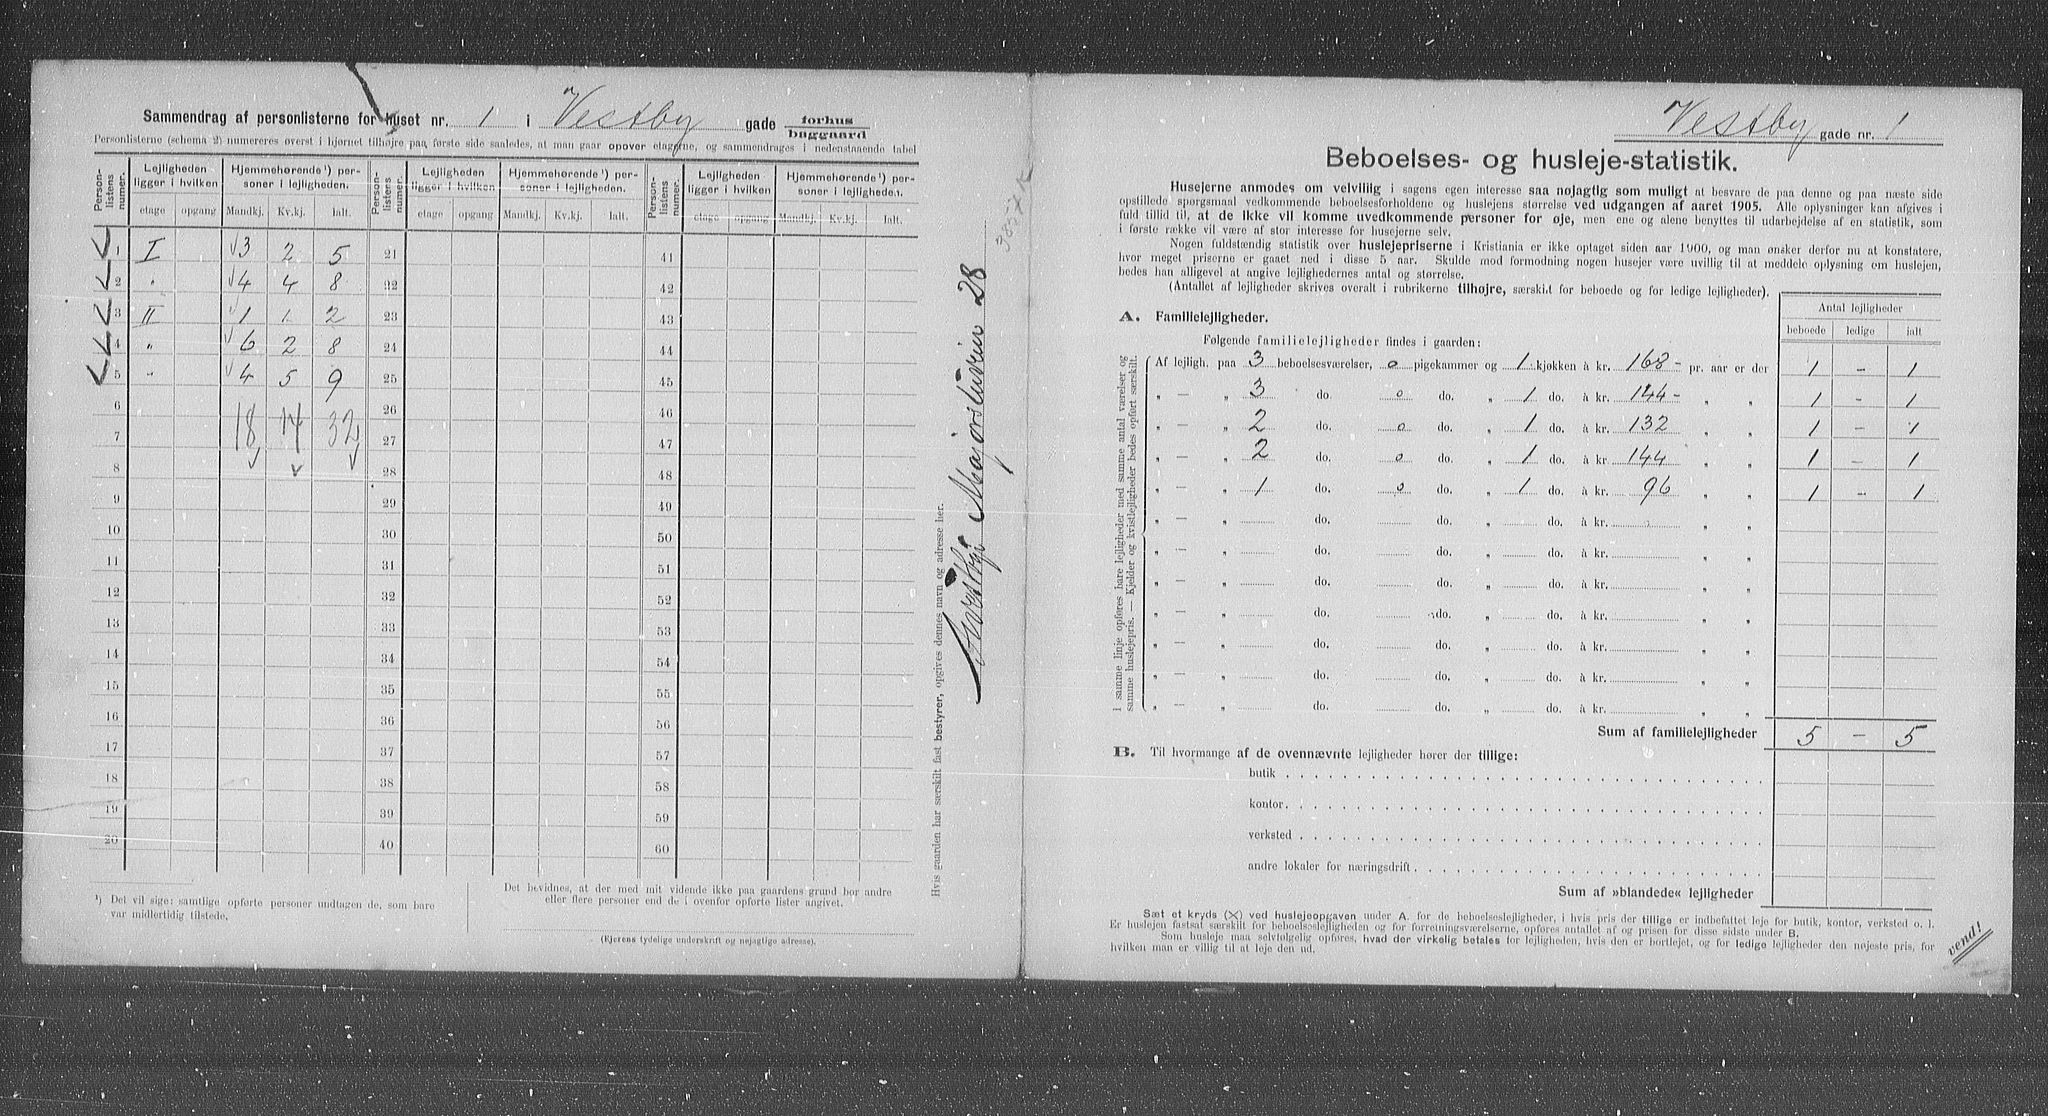 Sammendrag af personlisterne for huset nr. 1 i Vestby gade forhus baggaard
Personlisterne (schema 2) numereres øverst i hjørnet tilhøjre paa første side saaledes, at man gaar opover etagerne, og sammendrages i nedenstaaende tabel
Person-listens numer. Lejligheden ligger i hvilken Hjemmehørende¹) personer i lejligheden. Person-listens numer. Lejligheden ligger i hvilken Hjemmehørende¹) personer i lejligheden. Person-listens numer. Lejligheden ligger i hvilken Hjemmehørende¹) personer i lejligheden.
etage opgang Mandkj. Kv.kj. Ialt. etage opgang Mandkj. Kv.kj. Ialt. etage opgang Mandkj. Kv.kj. Ialt.
1 I 3 2 5 21 41
2 " 4 4 8 22 42
3 II 1 1 2 23 43
4 " 6 2 8 24 44
5 " 4 5 9 25 45
6 18 14 32 26 46
7 27 47
8 28 48
9 29 49
10 30 50
11 31 51
12 32 52
13 33 53
14 34 54
15 35 55
16 36 56
17 37 57
18 38 58
19 39 59
20 40 60
¹) Det vil sige: samtlige opførte personer undtagen de, som bare var midlertidig tilstede.
Det bevidnes, at der med mit vidende ikke paa gaardens grund bor andre
eller flere personer end de i ovenfor opførte lister angivet.
(Ejerens tydelige underskrift og nøjagtige adresse).
Hvis gaarden har særskilt fast bestyrer, opgives dennes navn og adresse her.
Majorstuvein 28
Vestby gade nr. 1
Beboelses- og husleje-statistik.
Husejerne anmodes om velvillig i sagens egen interesse saa nøjagtig som muligt at besvare de paa denne og paa næste side
opstillede spørgsmaal vedkommende beboelsesforholdene og huslejens størrelse ved udgangen af aaret 1905. Alle oplysninger kan afgives i
fuld tillid til, at de ikke vil komme uvedkommende personer for øje, men ene og alene benyttes til udarbejdelse af en statistik, som
i første række vil være af stor interesse for husejerne selv.
Nogen fuldstændig statistik over huslejepriserne i Kristiania er ikke optaget siden aar 1900, og man ønsker derfor nu at konstatere,
hvor meget priserne er gaaet ned i disse 5 aar. Skulde mod formodning nogen husejer være uvillig til at meddele oplysning om huslejen,
bedes han alligevel at angive lejlighedernes antal og størrelse.
(Antallet af lejligheder skrives overalt i rubrikerne tilhøjre, særskilt for beboede og for ledige lejligheder).
Antal lejligheder
beboede ledige ialt
A. Familielejligheder.
Følgende familielejligheder findes i gaarden:
I samme linje opføres bare lejligheder med samme antal værelser og
samme huslejepris. — Kjelder og kvistlejligheder bedes opført særskilt.
Af lejligh. paa 3 beboelsesværelser, o pigekammer og 1 kjøkken à kr. 168 - pr. aar er der 1 - 1
" — " 3 do. o do. " 1 do. à kr. 144 - " " 1 - 1
" — " 2 do. o do. " 1 do. à kr. 132 " " 1 - 1
" — " 2 do. o do. " 1 do. à kr. 144 " " 1 - 1
" — " 1 do. o do. " 1 do. à kr. 96 " " 1 - 1
" — " do. do. " do. à kr. " "
" — " do. do. " do. à kr. " "
" — " do. do. " do. à kr. " "
" — " do. do. " do. à kr. " "
" — " do. do. " do. à kr. " "
" — " do. do. " do. à kr. " "
" — " do. do. " do. à kr. " "
Sum af familielejligheder 5 - 5
B. Til hvormange af de ovennævnte lejligheder hører der tillige:
butik
kontor
verksted
andre lokaler for næringsdrift
Sum af »blandede« lejligheder
Sæt et kryds (X) ved huslejeopgaven under A. for de beboelseslejligheder, i hvis pris der tillige er indbefattet leje for butik, kontor, verksted o. l.
Er huslejen fastsat særskilt for beboelseslejligheden og for forretningsværelserne, opføres antallet af og prisen for disse sidste under B.
Som husleje maa selvfølgelig opføres, hvad der virkelig betales for lejligheden, hvis den er bortlejet, og for ledige lejligheder den nøjeste pris, for
hvilken man er villig til at leje den ud.
vend!